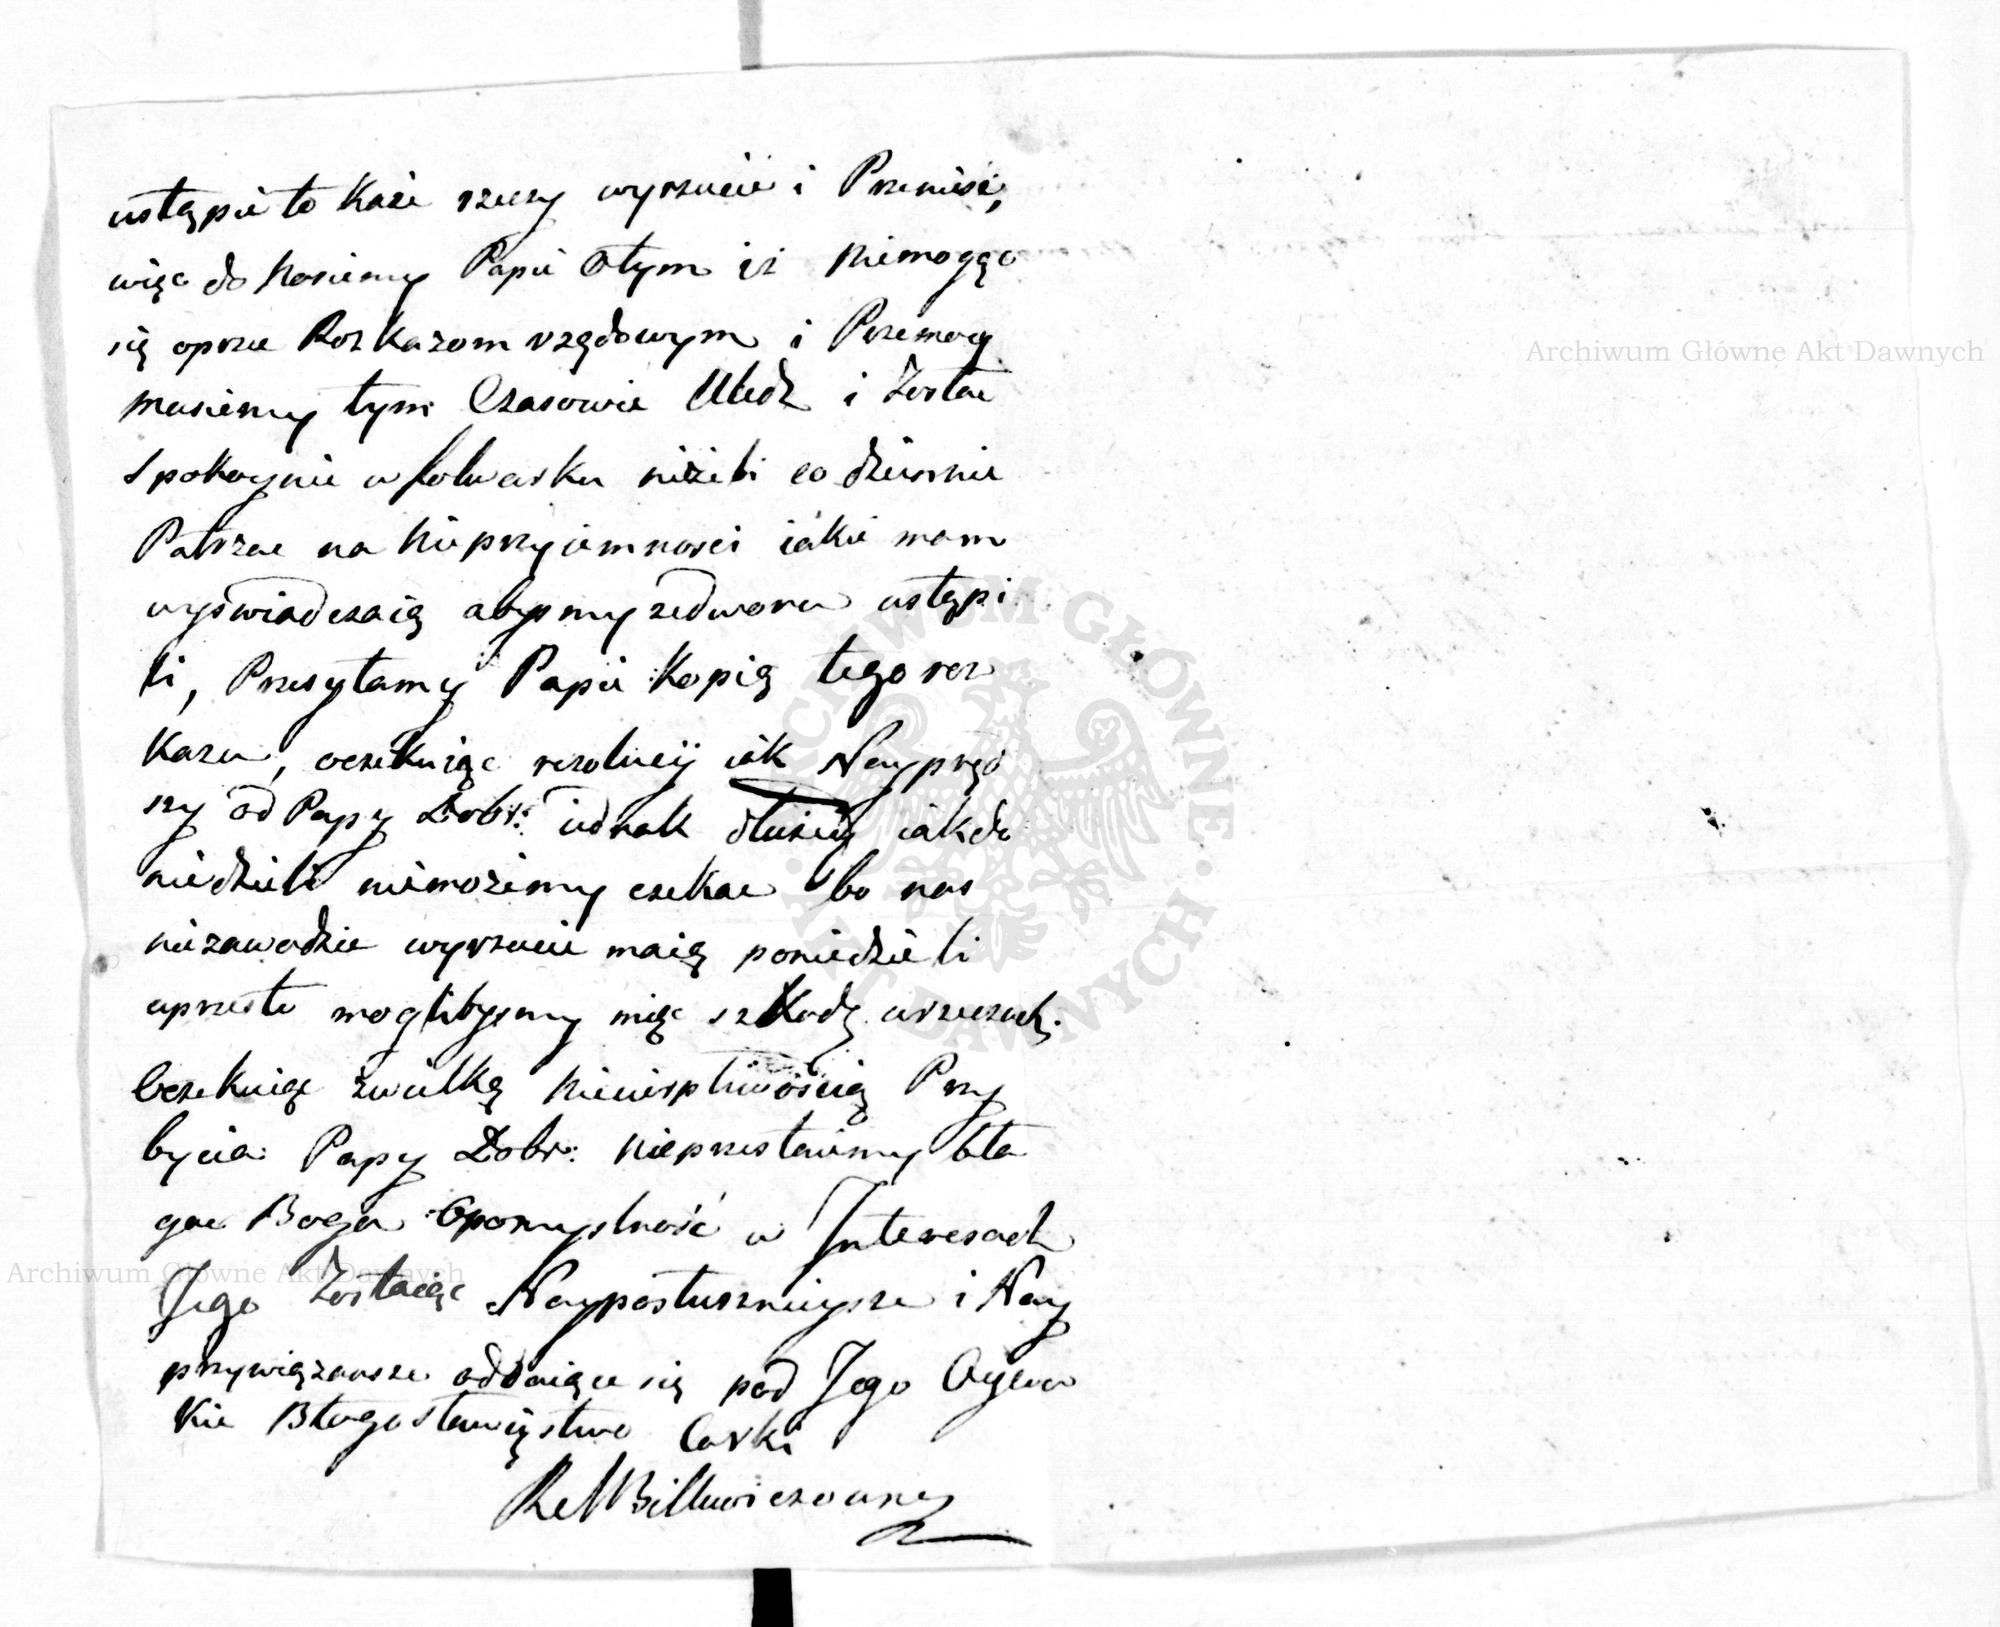 ustąpić to Każe rzeczy wyrzucić i Przenieść,
więc do Nosiemy Papie Otym iż Niemogąc
się oprzeć Rozkazom rządowym i Przemocy
musiemy tym Czasowie Uledz i Zostać
Spokoynie w folwarku niżeli co dziennie
Patrzać na Nieprzyiemnosci iakie nam
wyświadczaią abysmy zedworu ustąpi
li, Przesyłamy Papie Kopią tego roz
Kazu, oczekuiąc rezolucij iak Nayprędz
szy od Papy Dobr: iednak dłużey iak do
niedzieli niemożemy czekać bo nas
niezawodzie wyrzucić maią poniedzieli
aprzesto moglibysmy mieć szkodę wrzeczach.
Oczekuiąc zwielką Niecierpliwością Przy
bycia Papy Dobr: Nieprzestaiemy bła
gać Boga Opomyslność w Interesach
Jego Zostaiąc Nayposłusznieysze i Nay
przywiązansze oddaiące się pod Jego Oycow
Kie Błogosławięstwo Corki
Billewiczowny
Archiwum Główne Akt Dawnych
Archiwum Główne Akt Dawnych
ARCHIWUM GŁÓWNE · AKT DAWNYCH ·